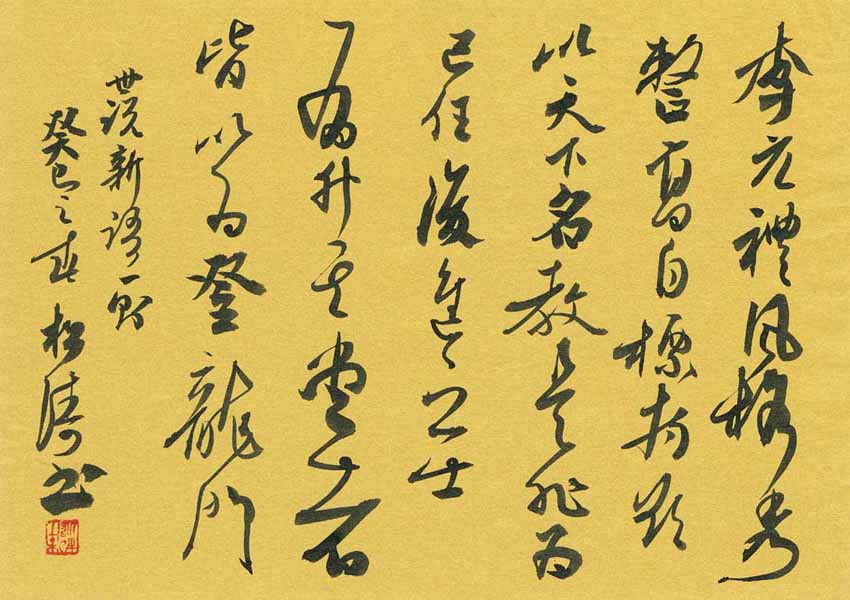 李元禮風格秀
整高自標持欲
以天下名教是非為
己任後進之士
有升其堂者
皆以為登龍門
世説新語一則
癸巳之春松濤书